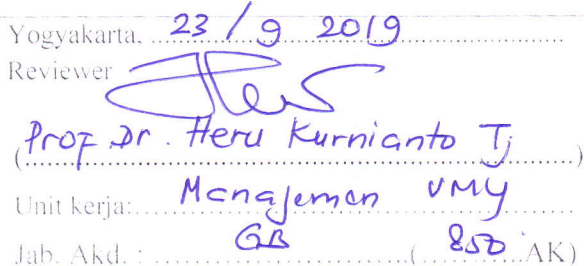 Yogyakarta, 23 / 9 2019
Reviewer
(Prof Dr. Heru Kurnianto Tj)
Unit kerja: Manajemen UMY
Jab. Akd. : GB (850 AK)